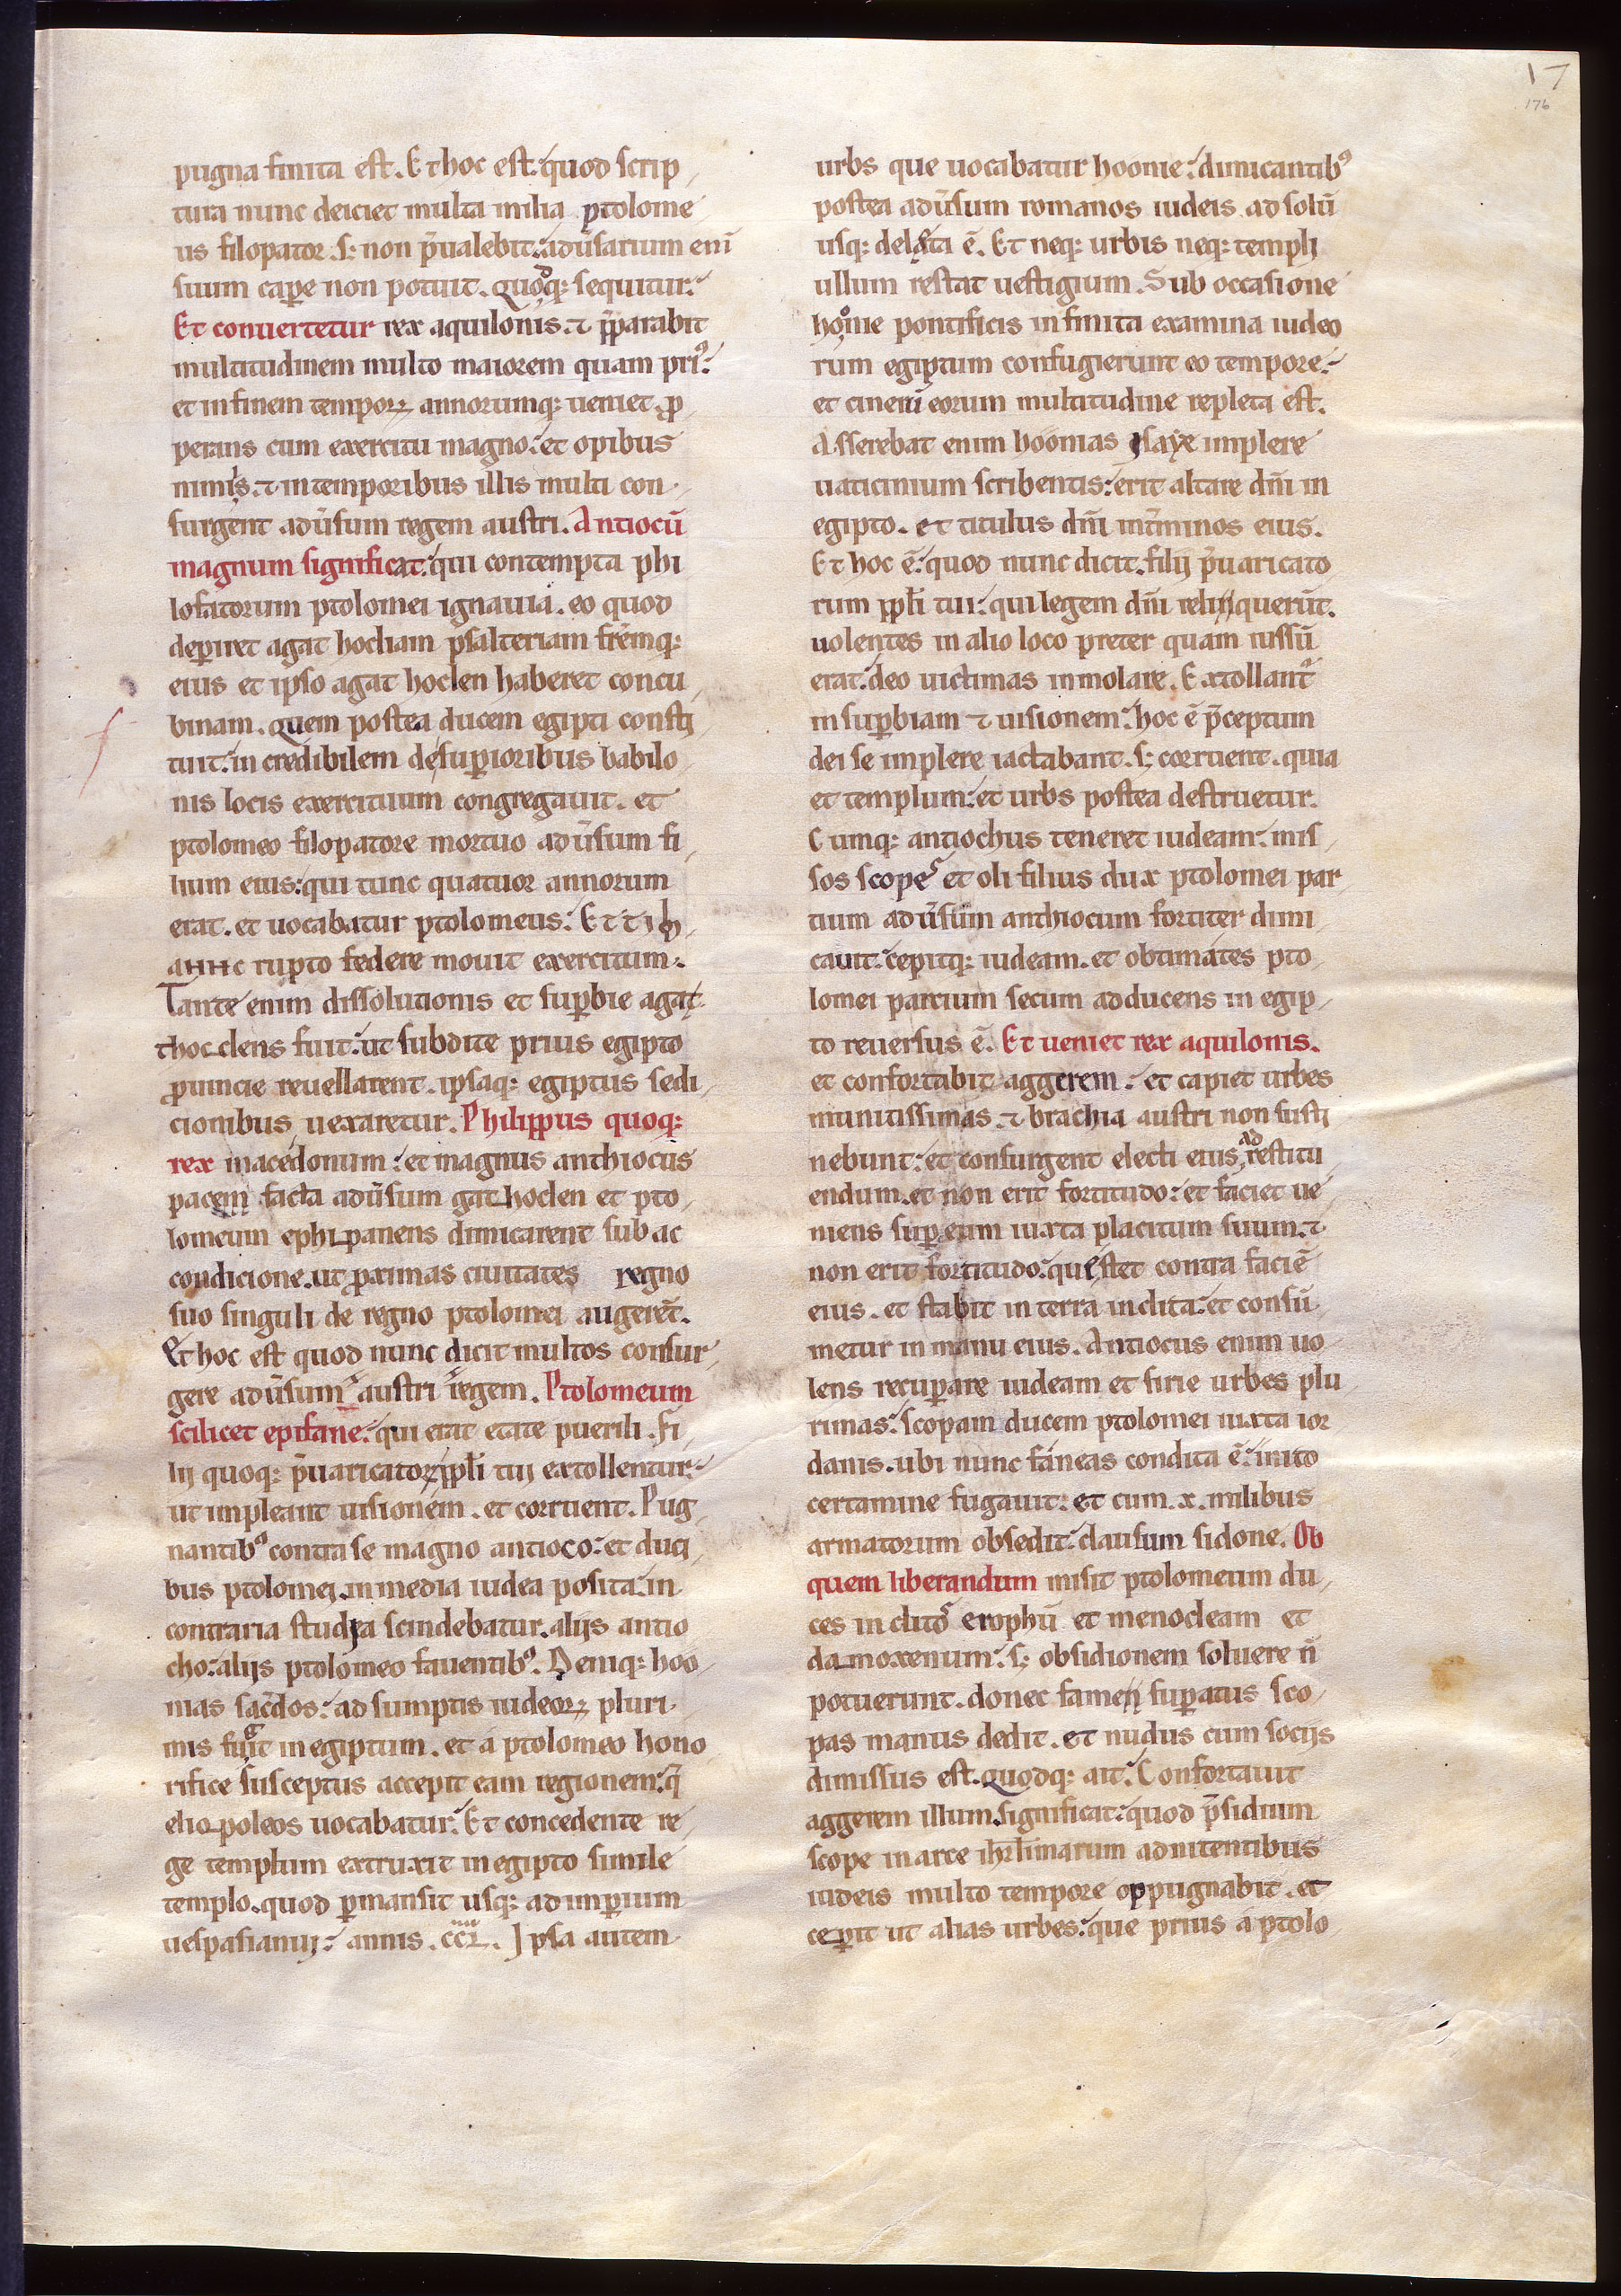 17
176
pugna finita est. Et hoc est: quod scrip
tura nunc deiciet multa milia ptolome
us filopator. s; non p̄ualebit: adūsarium eni
suum cap̱e non potuit. quodq; sequitur:
Et conuertetur rex aquilonis. ⁊ p̄parabit
multitudinem multo maiorem quam pri⁹:
et in finem temporꝝ annorumq; ueniet. ꝓ
perans cum exercitu magno: et opibus
nimis. ⁊ in temporibus illis multi con
surgent adūsum regem austri. Antiocū
magnum significat: qui contempta phi
lofatorum ptolomei ignauia. eo quod
deꝑiret agat hocliam psalteriam fr̄emq;
eius et ipso agat hoclen haberet concu
binam. quem postea ducem egipti consti
tuit: incredibilem de suꝑioribus babilo
nis locis exercituum congregauit. et
ptolomeo filopatore mortuo adūsum fi
lium eius: qui tunc quatuor annorum
erat. et uocabatur ptolomeus: Et tih
annc rupto federe mouit exercitum.
Tante enim dissolutionis et suꝑbie agat
thoclens fuit: ut subdite prius egipto
ꝓuincie reuellarent. ipsaq; egiptus sedi
cionibus uexaretur. Philippus quoq;
rex macedonum: et magnus anthiocus
pacem facta adūsum gathoclen et pto
lomeum ephipanens dimicarent sub ac
condicione. ut ꝓximas ciuitates regno
suo singuli de regno ptolomei augerēt.
Et hoc est quod nunc dicit multos consur
gere adūsum austri regem. Ptolomeum
scilicet epifane: qui erat etate puerili. Fi
lij quoq; p̄uaricatorꝝ pp̄li tui extollentur:
ut impleant uisionem. et corruent. Pug
nantib⁹ contra se magno antioco: et duci
bus ptolomei. in media iudea posita: in
contraria studia scindebatur. alijs antio
cho: alijs ptolomeo fauentib⁹. Deniq; hoo
nias sac̄dos: ad sumptis iudeorꝝ pluri
mis fugit in egiptum. et a ptolomeo hono
rifice susceptus accepit eam regionem: q̄
eliopoleos uocabatur: Et concedente re
ge templum extruxit in egipto simile
templo. quod ꝑmansit usq; ad impium
uespasianij: annis. ccL. Ipsa autem
urbs que uocabatur hoonie: dimicantib⁹
postea adūsum romanos iudeis. ad solū
usq; deleta ē. Et neq; urbis neq; templi
ullum restat uestigium. Sub occasione
honie pontificis infinita examina iudeo
rum egiptum confugierunt eo tempore:
et cinerū eorum multitudine repleta est.
Asserebat enim hoonias ysaye implere
uaticinium scribentis: erit altare dn̄i in
egipto. et titulus dn̄i in t̄minos eius.
Et hoc ē: quod nunc dicit. filij p̄uaricato
rum pp̄li tui: qui legem dn̄i relinquerūt.
uolentes in alio loco preter quam iussū
erat: deo uictimas inmolare. Extollant̄
in suꝑbiam ⁊ uisionem: hoc ē p̄ceptum
dei se implere iactabant. s; corruent. quia
et templum: et urbs postea destruetur.
Cumq; antiochus teneret iudeam: mis
sos scope et oli filius dux ptolomei par
tium adūsum anthiocum fortiter dimi
cauit: cepitq; iudeam. et obtimates pto
lomei parcium secum adducens in egip
to reuersus ē. Et ueniet rex aquilonis.
et confortabit aggerem: et capiet urbes
munitissimas. ⁊ brachia austri non susti
nebunt: et consurgent electi eius ad restitu
endum. et non erit fortitudo: et faciet ue
niens suꝑ eum iuxta placitum suum. ⁊
non erit fortitudo: que stet contra faciē
eius. et stabit in terra inclita: et consū
metur in manu eius. Antiocus enim uo
lens recuꝑare iudeam et sirie urbes plu
rimas: scopam ducem ptolomei iuxta ior
danis. ubi nunc faneas condita ē: inito
certamine fugauit: et cum. x. milibus
armatorum obsedit: clausum sidone. Ob
quem liberandum misit ptolomeum du
ces inclito erophū et menocleam et
damoxenum: s; obsidionem soluere n̄
potuerunt. donec famen suꝑatus sco
pas manus dedit. et nudus cum socijs
dimissus est. quodq; ait: Confortauit
aggerem illum. significat: quod p̄sidium
scope in arce ihrl̄imarum adnitentibus
iudeis multo tempore oppugnabit. et
ceꝑit ut alias urbes: que prius a ptolo